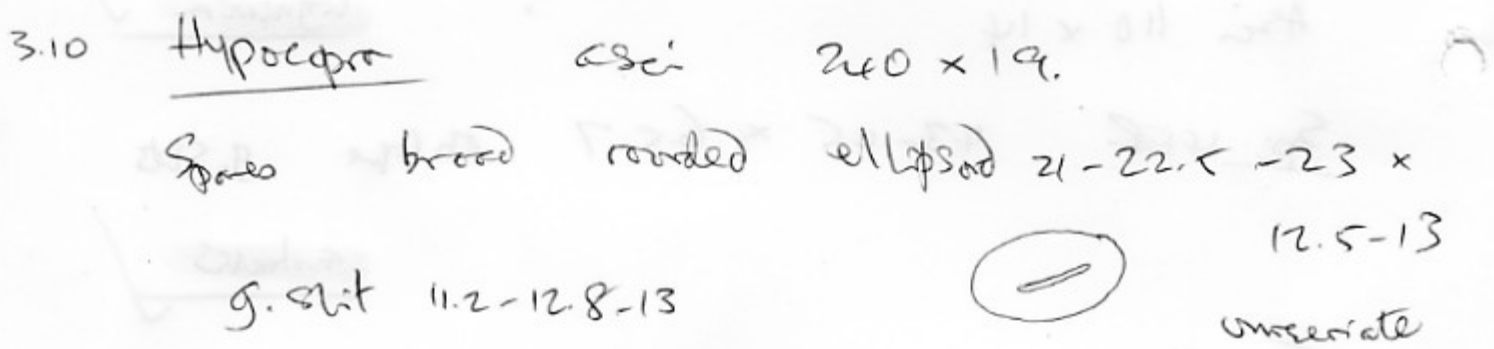 3.10 Hypocopra asci 240 × 19.
Spores broad rounded ellipsoid 21-22.5-23 ×
12.5-13
g. slit 11.2-12.8-13
uniseriate